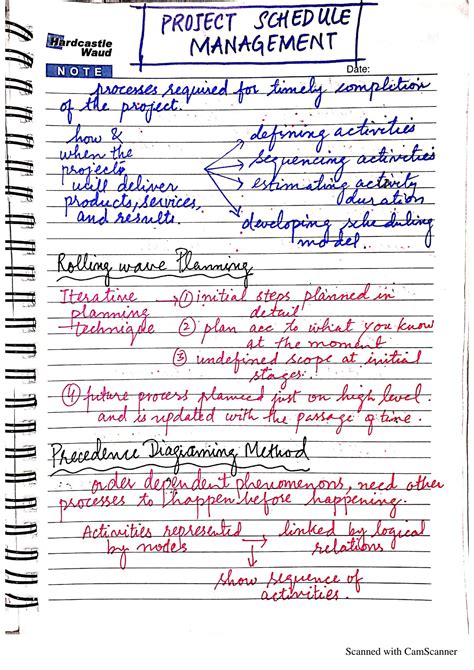 PROJECT SCHEDULE
MANAGEMENT
Hardcastle
Waud
NOTE
Date:
processes required for timely complition
of the project.
how &
when the
project
will deliver
products, services,
and results.
defining activities
sequencing activities
estimating activity
duration
developing scheduling
model.
Rolling wave Planning
Iterative
planning
technique
① initial steps planned in
detail
② plan acc to what you know
at the moment
③ undefined scope at initial
stages.
④ future process planned just on high level
and is updated with the passage of time.
Precedence Diagraming Method
order dependent phenomenons, need other
processes to happen before happening.
Activities represented
by nodes
linked by logical
relations
show sequence of
activities.
Scanned with CamScanner